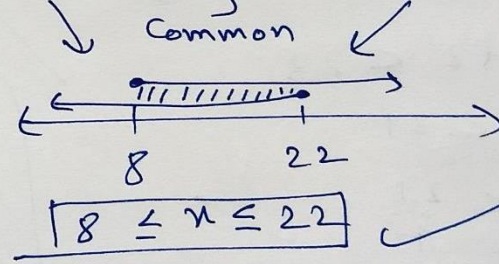 Common
8 22
8 ≤ x ≤ 22